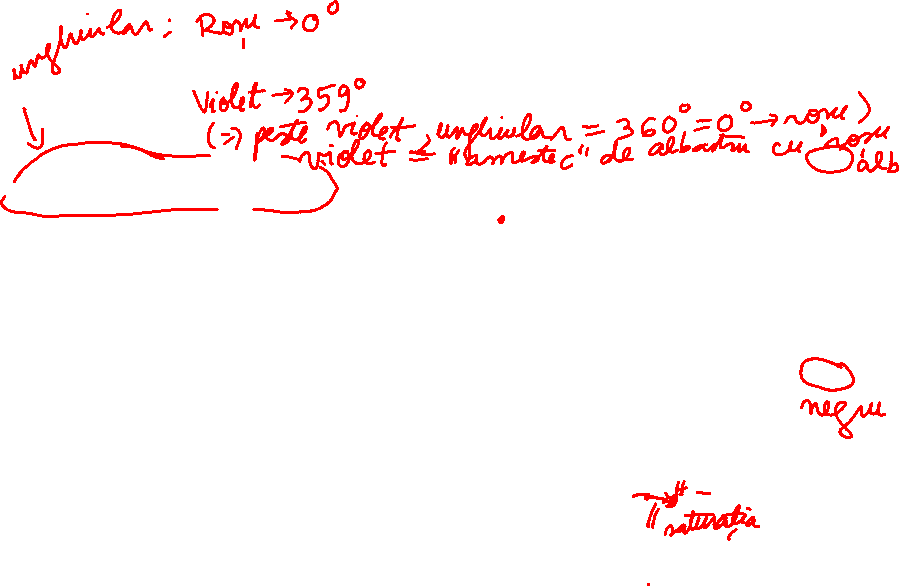 unghiular: Roșu → 0°
Violet → 359°
(⇒) peste violet, unghiular = 360° = 0° → roșu)
→ violet = "amestec" de albastru cu roșu
alb
negru
saturația